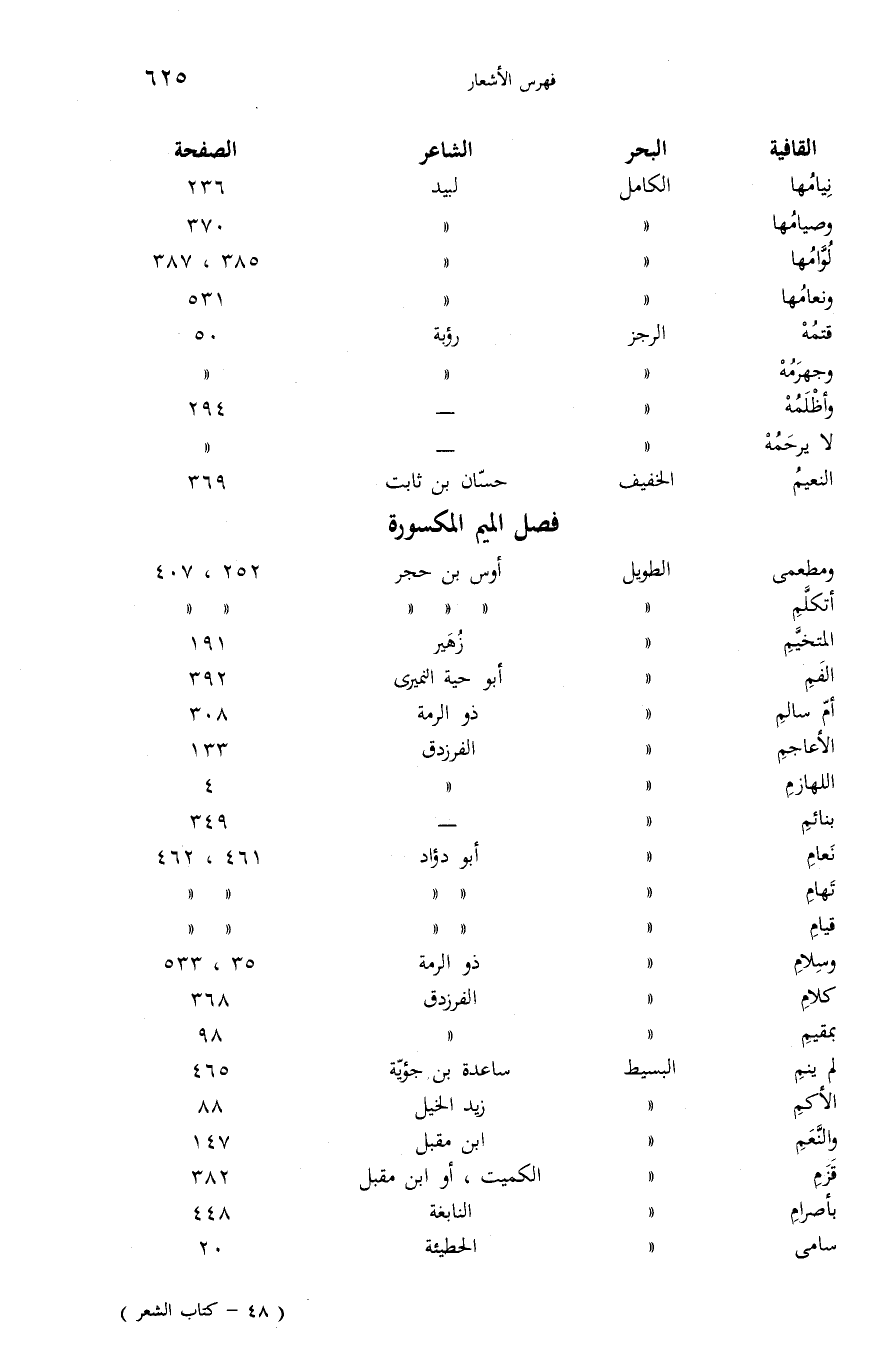 فهرس الأشعار ٦٢٥
القافية البحر الشاعر الصفحة
نِيامُها الكامل لبيد ٢٣٦
وصيامُها » » ٣٧٠
لُوَّامُها » » ٣٨٥ ، ٣٨٧
ونعامُها » » ٥٣١
قتمُهْ الرجز رؤبة ٥٠
وجهرَمُهْ » » »
وأظْلَمُهْ » — ٢٩٤
لا يرحَمُهْ » — »
النعيمُ الخفيف حسّان بن ثابت ٣٦٩
فصل الميم المكسورة
ومطعمى الطويل أوس بن حجر ٢٥٢ ، ٤٠٧
أتكلَّمِ » » » » » »
المتخيَّمِ » زُهَير ١٩١
الفَمِ » أبو حية النميرى ٣٩٢
أمّ سالمِ » ذو الرمة ٣٠٨
الأعاجمِ » الفرزدق ١٣٣
اللهازمِ » » ٤
بنائمِ » — ٣٤٩
نَعامِ » أبو دؤاد ٤٦١ ، ٤٦٢
تَهامِ » » » » »
قيامِ » » » » »
وسِلامِ » ذو الرمة ٣٥ ، ٥٣٣
كلامِ » الفرزدق ٣٦٨
بمقيمِ » » ٩٨
لم ينمِ البسيط ساعدة بن جؤيّة ٤٦٥
الأكمِ » زيد الخيل ٨٨
والنَّعَمِ » ابن مقبل ١٤٧
قَزَمِ » الكميت ، أو ابن مقبل ٣٨٢
بأصرامِ » النابغة ٤٤٨
سامى » الحطيئة ٢٠
( ٤٨ – كتاب الشعر )